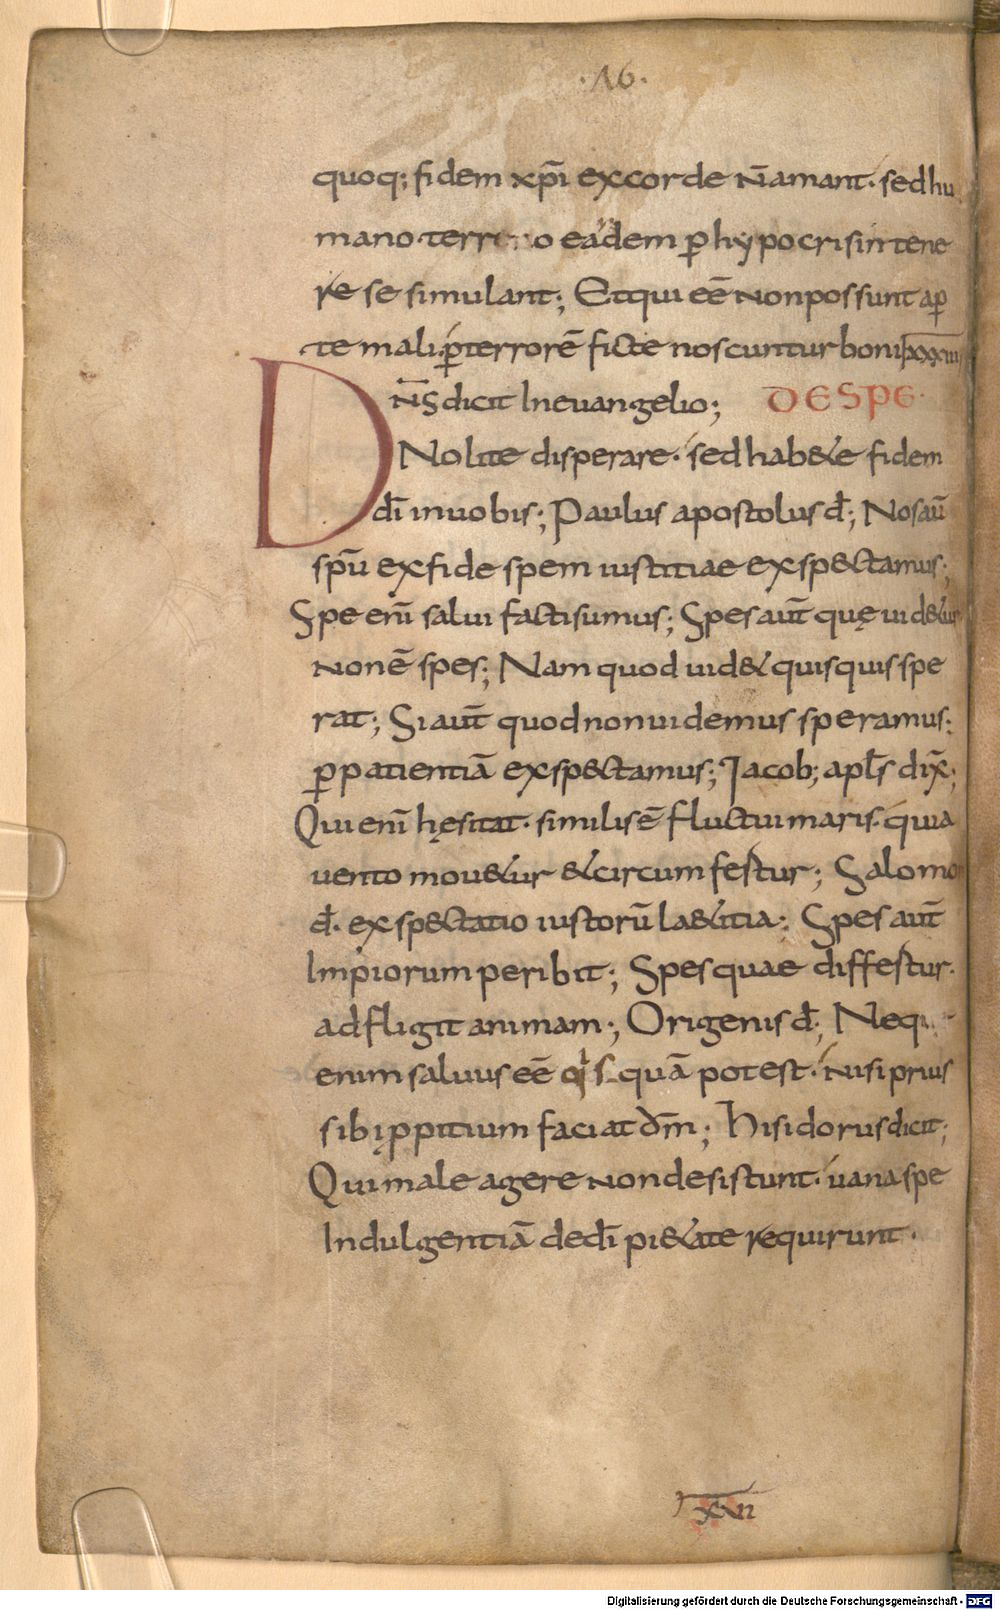 ·16·
quoq; fidem xp̄i excorde n̄amant· sed hu
mano terr o eadem ꝑ hypocrisin tene
re se simulant; Et qui eē non possunt aꝑ
te mali ꝓterrorē ficte noscuntur boni
DN̄S dicit In euangelio; DE SPE·
Nolite disperare· sed hab&e fidem
dī in uobis; Paulus apostolus đ; Nos aū
spū ex fide spem iustitiae exspectamus;
Spe enī salui facti sumus; Spes aūt quę uid&ur
non ē spes; Nam quod uid& quis quis spe
rat; Si aūt quod non uidemus speramus;
ꝑ patientiā exspectamus; Jacob; apƚs dix̄;
Qui enī hęsitat· similis ē fluctui maris· quia
uento mou&ur & circumfertur; Salomo
đ· exspectatio iustorū la&itia; Spes aūt
Impiorum peribit; Spes quae differtur·
adfligit animam; Origenis đ; Neq
enim saluus eē quā potest· nisi prius
sibi ꝓpitium faciat dm̄; Hisidorus dicit;
Qui male agere non desistunt· uana spe
Indulgentiā de dī pi&ate requirunt·
Digitalisierung gefördert durch die Deutsche Forschungsgemeinschaft - DFG